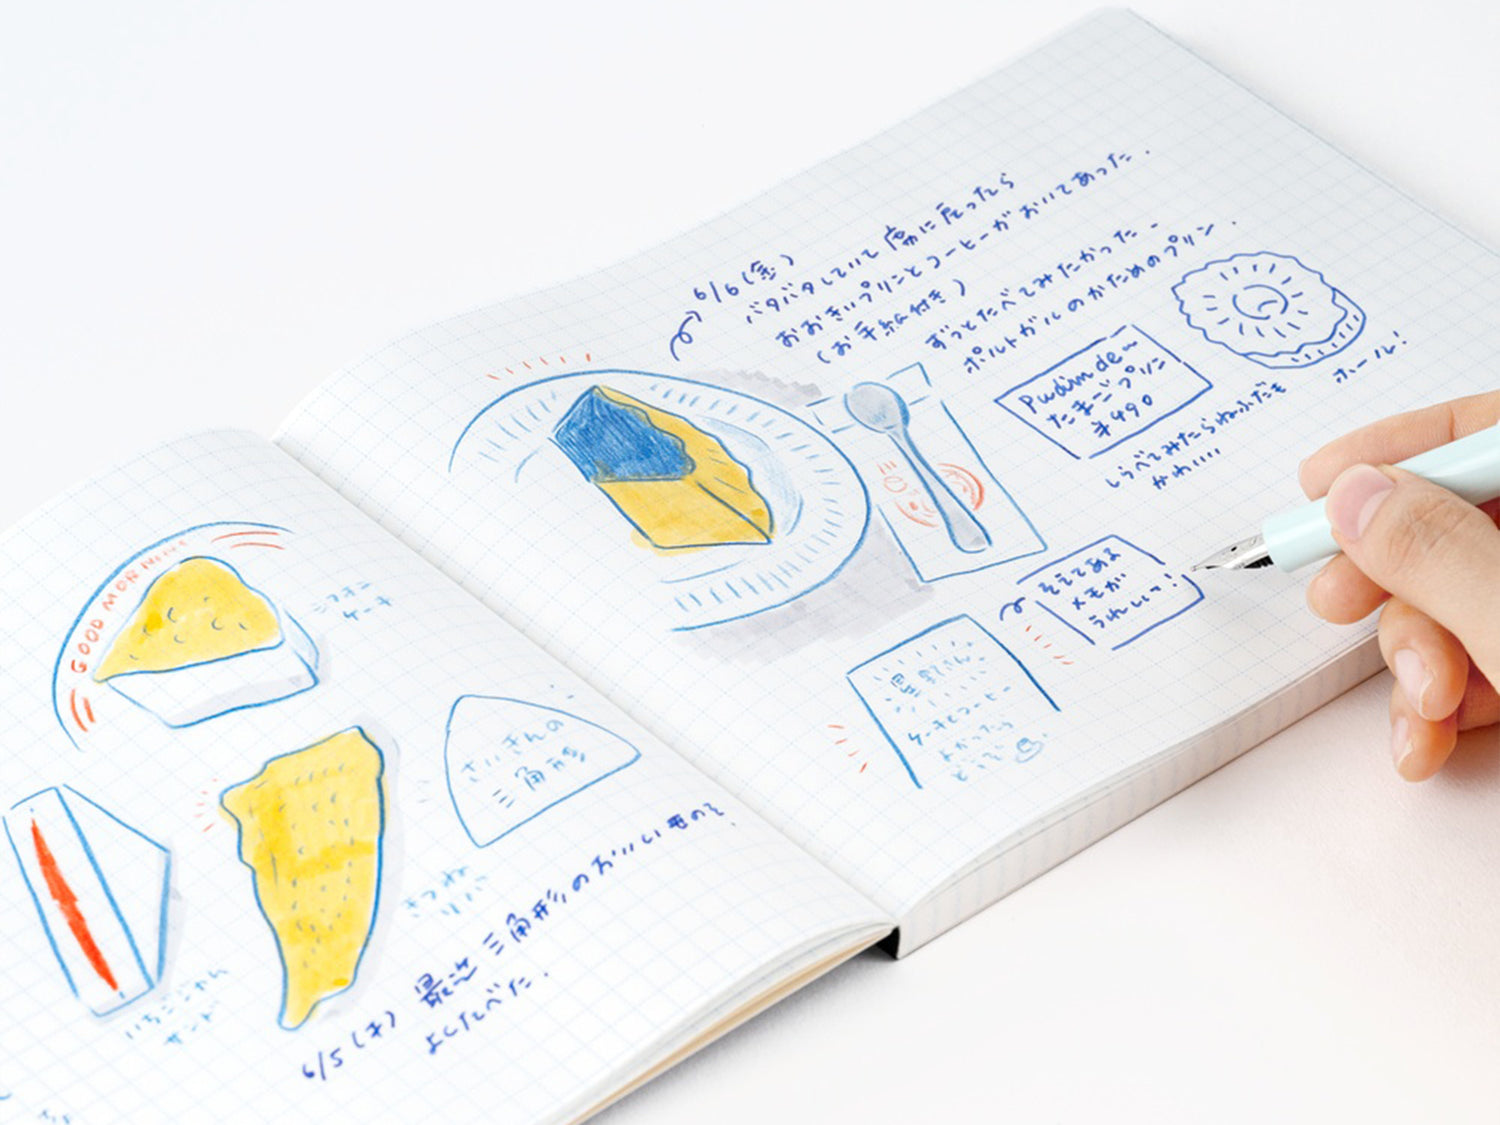 GOOD MORNING
シフォン
ケーキ
さいきんの
三角形
いちごジャム
サンド
6/5(木) 最近 三角形のおいしいものを
よくたべた.
6/6(金)
バタバタしていて 席に戻ったら
おおきいプリンとコーヒーがおいてあった.
(お手紙付き)
ずっとたべてみたかった
ポルトガルのかためのプリン.
Pudim de
たまごプリン
¥490
しらべてみたら
かわいい
ホール!
そえてある
メモが
うれしい!
ケーキとコーヒー
よかったら
どうぞ